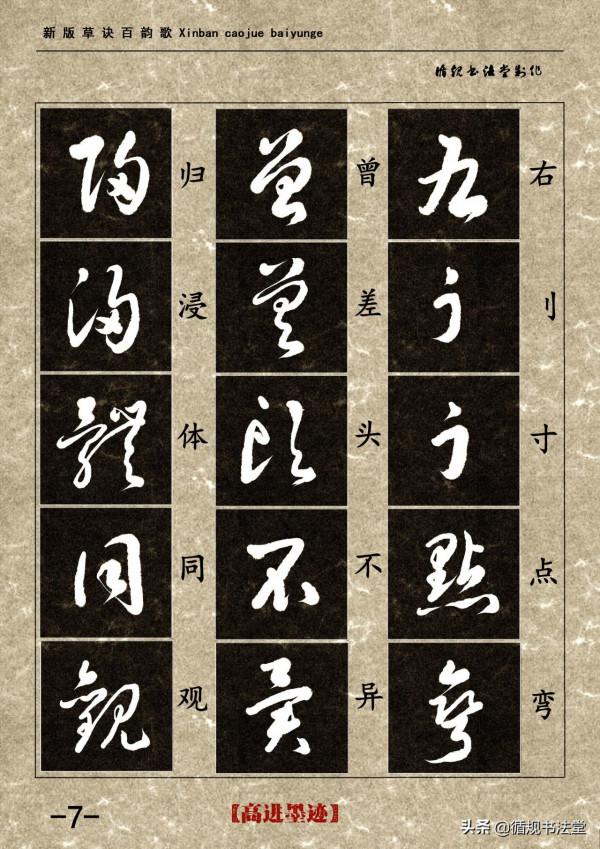 新版草诀百韵歌 Xinban caojue baiyunge
循规书法堂制作
右刂寸点弯
曾差头不异
归浸体同观
-7-
【高进墨迹】
头条@循规书法堂